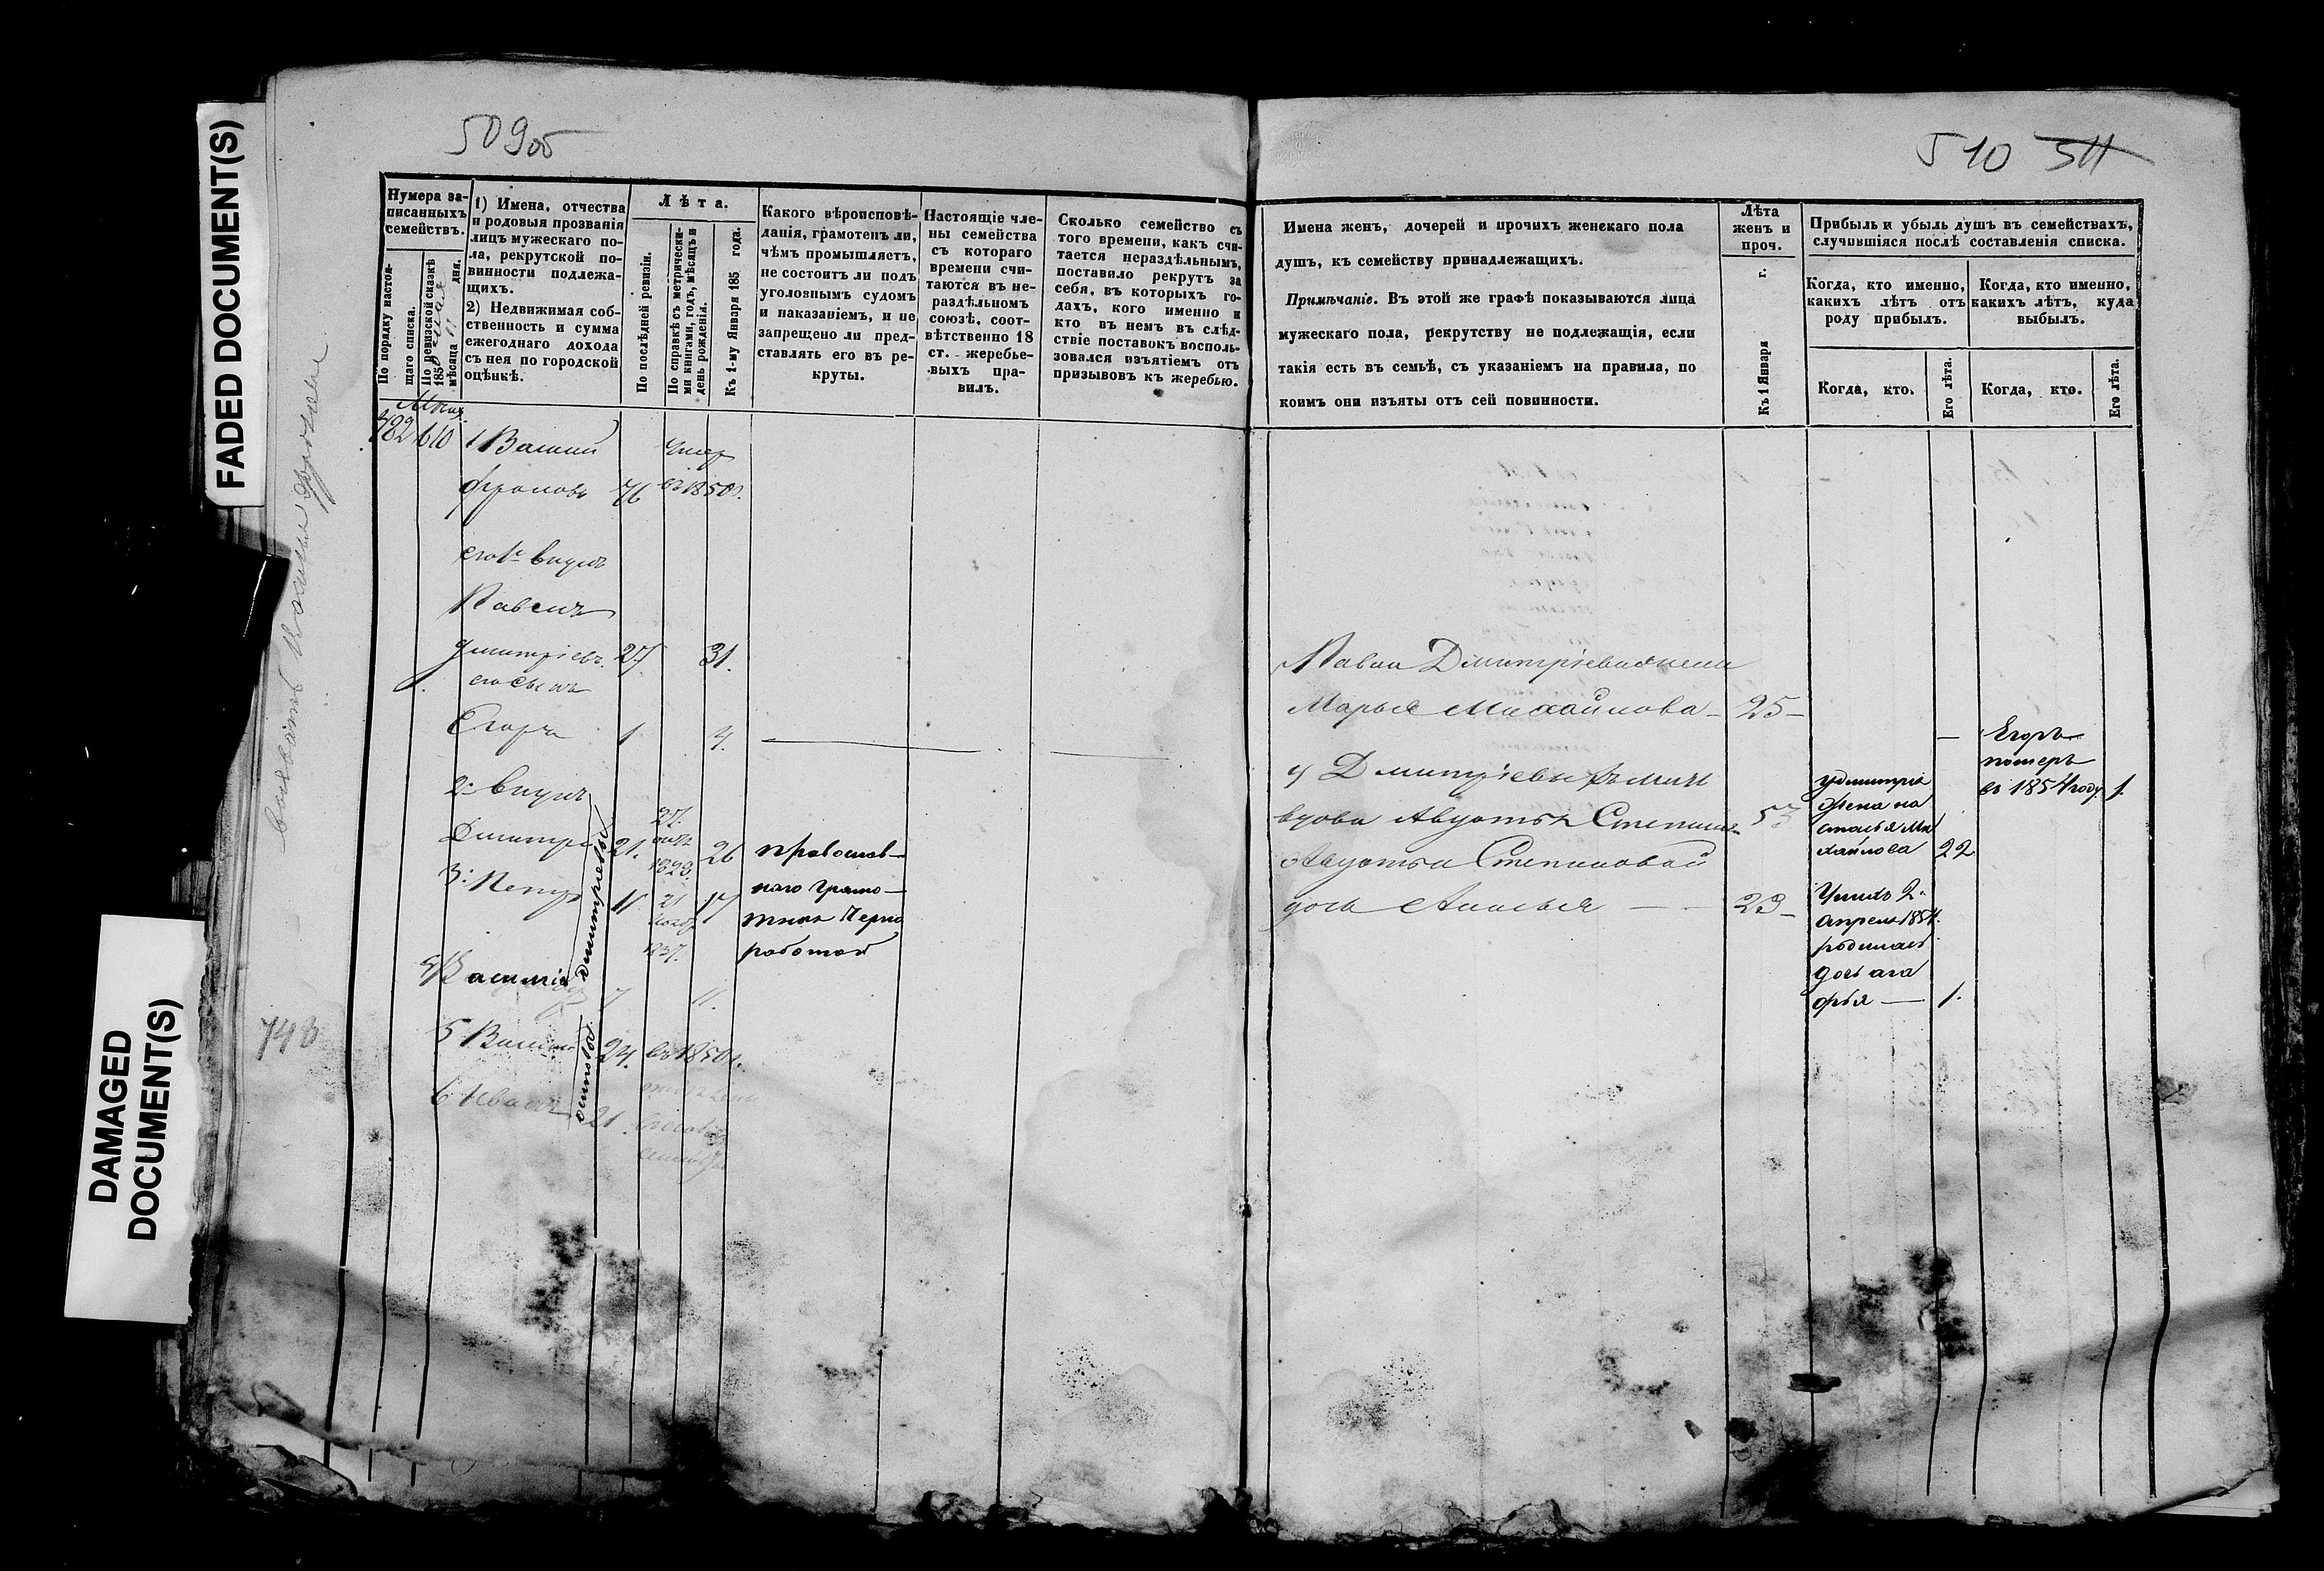 FADED DOCUMENT(S)
DAMAGED
DOCUMENT(S)
509об
Нумера за-
писанныхъ
семействъ.
По порядку настоя-
щаго списка.
По ревизской сказкѣ
185 мая
мѣсяца 11 дня.
1) Имена, отчества
и родовыя прозванія
лицъ мужескаго по-
ла, рекрутской по-
винности подлежа-
щихъ.
2) Недвижимая соб-
ственность и сумма
ежегоднаго дохода
съ нея по городской
оцѣнкѣ.
Лѣта.
По послѣдней ревизіи.
По справкѣ съ метрически-
ми книгами, годъ, мѣсяцъ и
день рожденія.
Къ 1-му Января 185 года.
Какого вѣроисповѣ-
данія, грамотенъ ли,
чѣмъ промышляетъ,
не состоитъ ли подъ
уголовнымъ судомъ
и наказаніемъ, и не
запрещено ли пред-
ставлять его въ ре-
круты.
Настоящіе чле-
ны семейства
съ котораго
времени счи-
таются въ не-
раздѣльномъ
союзѣ, соот-
вѣтственно 18
ст. жеребье-
выхъ пра-
вилъ.
Сколько семейство съ
того времени, какъ счи-
тается нераздѣльнымъ,
поставило рекрутъ за
себя, въ которыхъ го-
дахъ, кого именно и
кто въ немъ въ слѣд-
ствіе поставокъ восполь-
зовался изъятіемъ отъ
призывовъ къ жеребью.
482 610 1 Василій умер
Фроловъ 76 въ 1850г.
его 1й внукъ
Павелъ
Дмитріевъ. 27. 31.
его сынъ
Егоръ 1 4.
2й внукъ
Дмитрі 21. 27. окт. 1828. 26 православ-
3й Петръ 11 21 нояб 1837. 17 наго грамо-
тнои Черно
работой
4 Василій 7 11.
Дмитріевы
5 Василій 24. въ 1850г.
6 Иванъ 21.
Осиповы
743
510 511
Имена женъ, дочерей и прочихъ женскаго пола
душъ, къ семейству принадлежащихъ.
Примѣчаніе. Въ этой же графѣ показываются лица
мужескаго пола, рекрутству не подлежащія, если
такія есть въ семьѣ, съ указаніемъ на правила, по
коимъ они изъяты отъ сей повинности.
Лѣта
женъ и
проч.
Къ 1 Января г.
Прибыль и убыль душъ въ семействахъ,
случившіяся послѣ составленія списка.
Когда, кто именно,
какихъ лѣтъ отъ
роду прибылъ.
Когда, кто именно,
какихъ лѣтъ, куда
выбылъ.
Когда, кто.
Его лѣта.
Когда, кто.
Его лѣта.
Павла Дмитріева жена
Марья Михайлова 25
Егоръ
померъ
въ 1854 году 1.
у Дмитріевы
вдова Авдотья Степанова 53
Авдотьи Степановой
дочь Анисья 23
у Дмитрія
жена на
стасья Ми
хайлова 22
У нихъ 2
апреля 1854
родилась
дочь ага
фья 1.